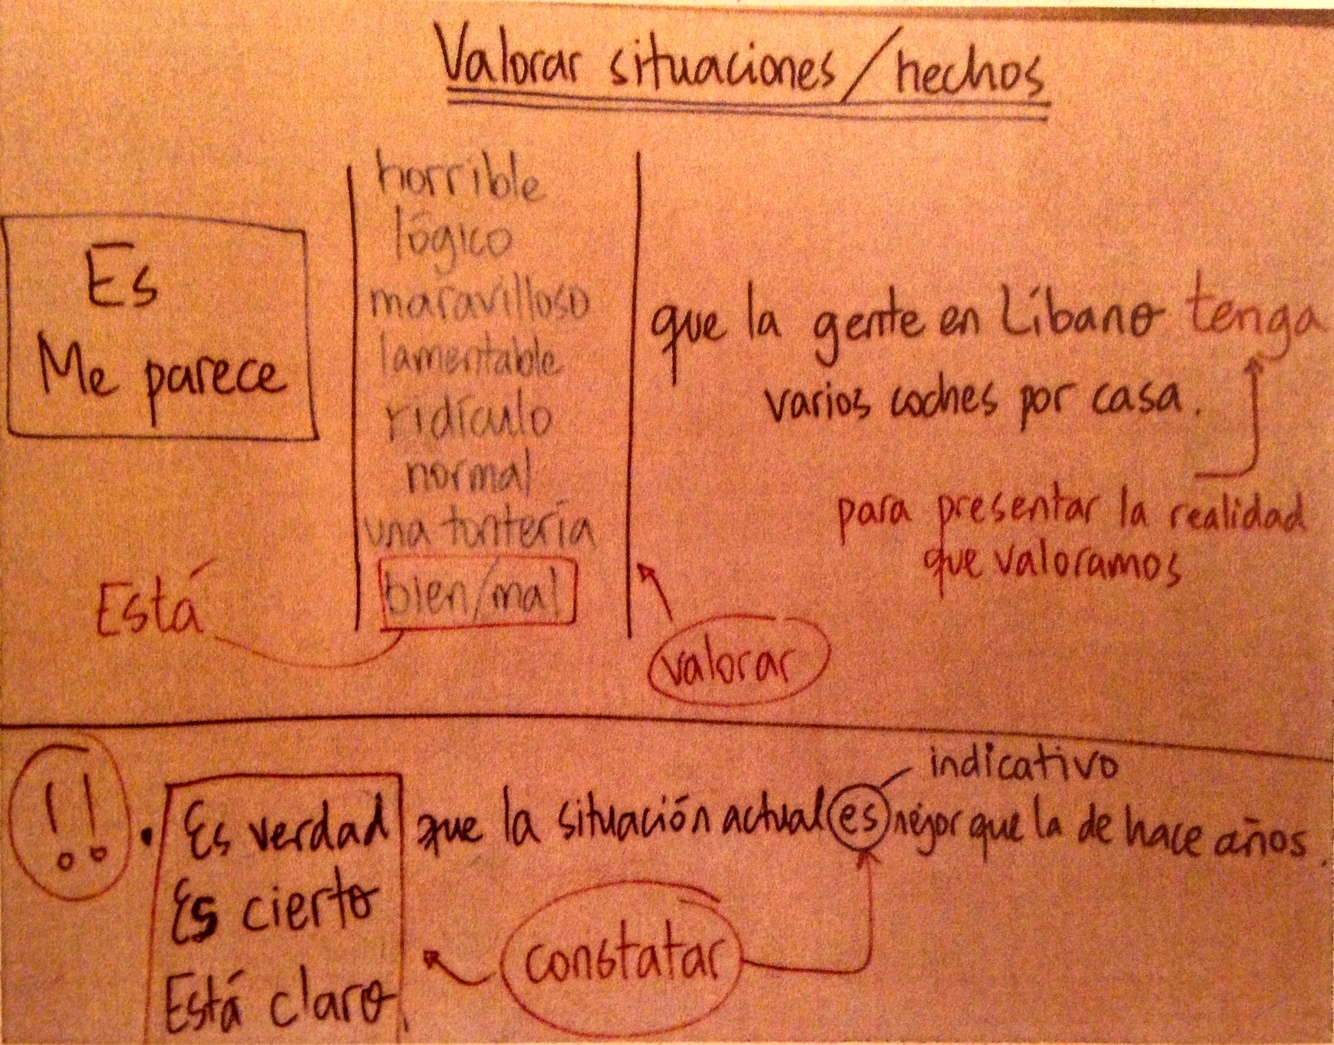 Valorar situaciones/hechos
Es
Me parece
Está
horrible
lógico
maravilloso
lamentable
ridículo
normal
una tontería
bien/mal
que la gente en Líbano tenga
varios coches por casa.
para presentar la realidad
que valoramos
valorar
!!
indicativo
• Es verdad que la situación actual es mejor que la de hace años.
Es cierto
Está claro
constatar